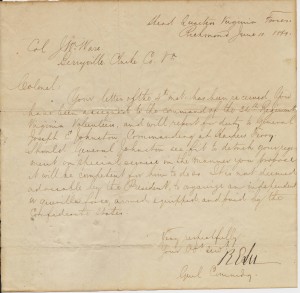 Head Quarters Virginia Forces
Richmond June 11 1861.
Col J. W. Ware
Berryville Clarke Co. Va.
Colonel
Your letter of the inst. has been received. You
have been assigned to the command of the Regiment
Virginia Volunteers, and will report for duty to General
Joseph E Johnston Commanding at Harpers Ferry
Should General Johnston see fit to detach your regi-
ment on special service in the manner you propose
it will be competent for him to do so. It is not deemed
advisable by the President, to organize an independent
or guerilla force, armed equipped and paid by the
Confederate States
Very respectfully
Your Obt Svt
R E Lee
Genl Commdg.